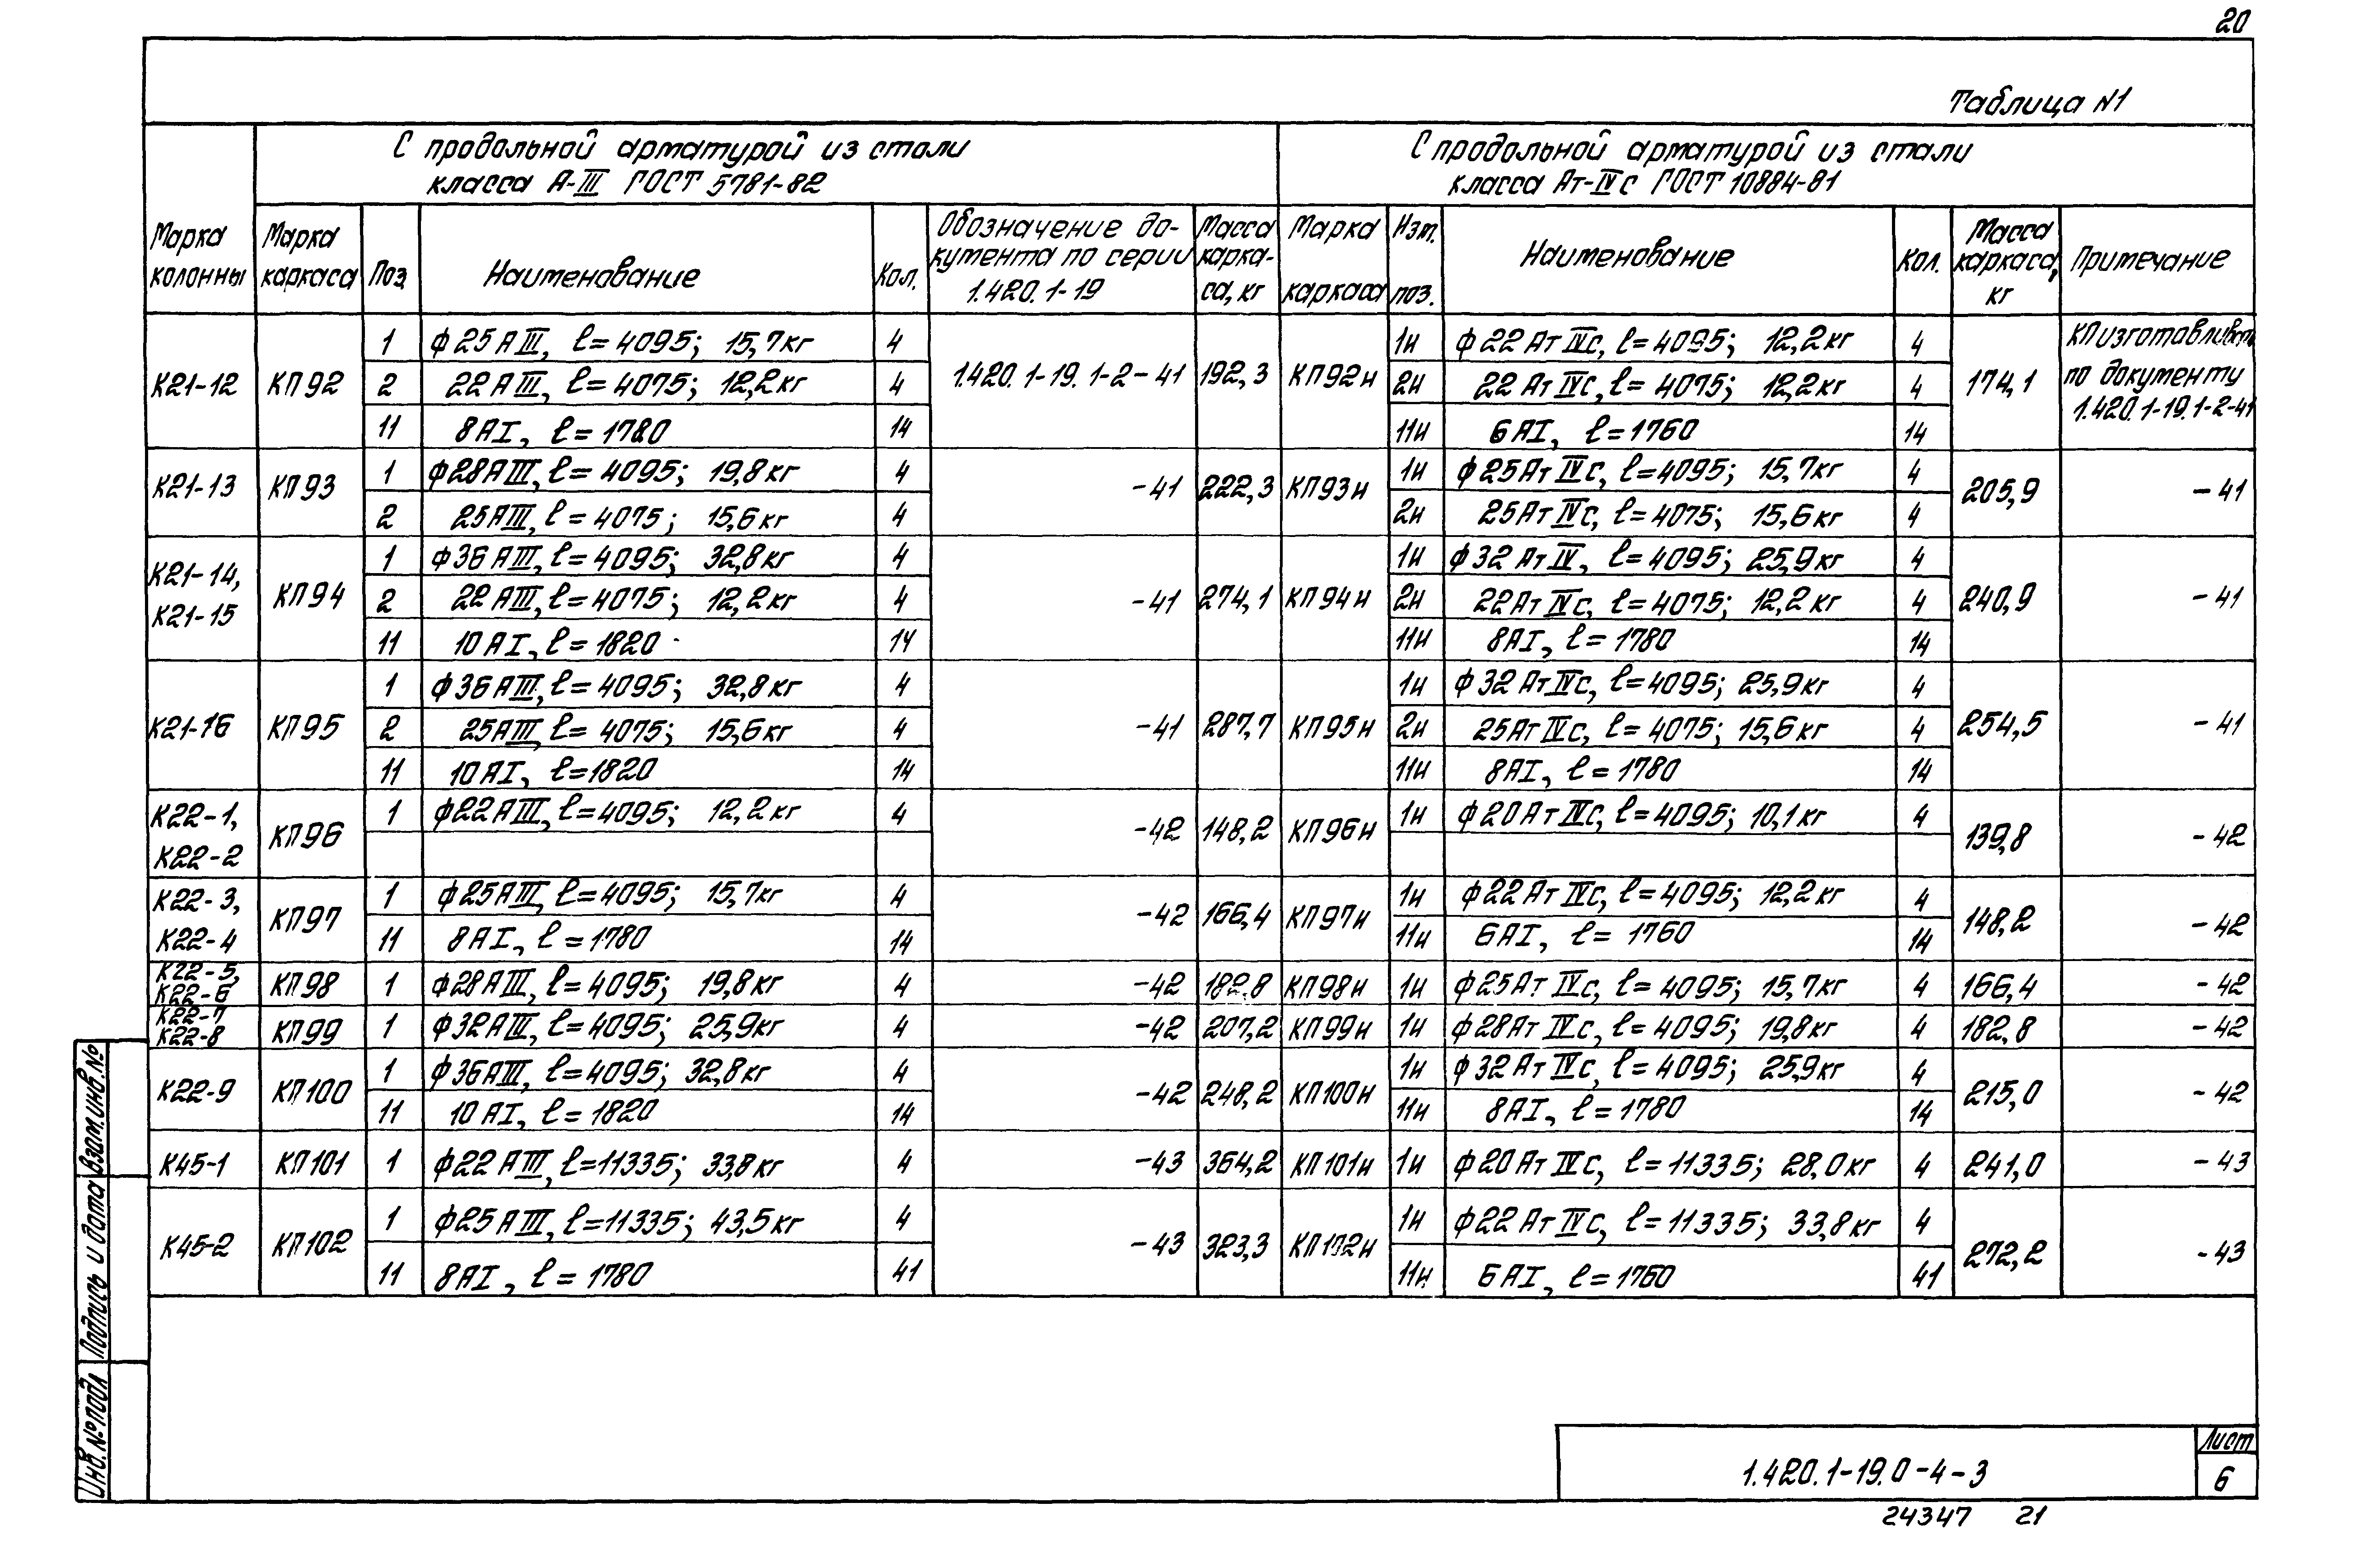 20
Таблица N1
С продольной арматурой из стали
класса А-III ГОСТ 5781-82
С продольной арматурой из стали
класса Ат-IVс ГОСТ 10884-81
Марка колонны
Марка каркаса
Поз.
Наименование
Кол.
Обозначение до-
кумента по серии
1.420.1-19
Масса
карка-
са, кг
Марка
каркаса
Изм.
поз.
Наименование
Кол.
Масса
каркаса,
кг
Примечание
К21-12 КП92 1 ф25АIII, ℓ=4095; 15,7кг 4 1.420.1-19.1-2-41 192,3 КП92н 1и ф22АтIVс, ℓ=4095; 12,2кг 4 174,1 КП изготавливать
2 22АIII, ℓ=4075; 12,2кг 4 2и 22АтIVс, ℓ=4075; 12,2кг 4 по документу
11 8АI, ℓ=1780 14 11и 6АI, ℓ=1760 14 1.420.1-19.1-2-41
К21-13 КП93 1 ф28АIII, ℓ=4095; 19,8кг 4 -41 222,3 КП93н 1и ф25АтIVс, ℓ=4095; 15,7кг 4 205,9 -41
2 25АIII, ℓ=4075; 15,6кг 4 2и 25АтIVс, ℓ=4075; 15,6кг 4
К21-14, 1 ф36АIII, ℓ=4095; 32,8кг 4 1и ф32АтIV, ℓ=4095; 25,9кг 4
К21-15 КП94 2 22АIII, ℓ=4075; 12,2кг 4 -41 274,1 КП94н 2и 22АтIVс, ℓ=4075; 12,2кг 4 240,9 -41
11 10АI, ℓ=1820 14 11и 8АI, ℓ=1780 14
1 ф36АIII, ℓ=4095; 32,8кг 4 1и ф32АтIVс, ℓ=4095; 25,9кг 4
К21-16 КП95 2 25АIII, ℓ=4075; 15,6кг 4 -41 287,7 КП95н 2и 25АтIVс, ℓ=4075; 15,6кг 4 254,5 -41
11 10АI, ℓ=1820 14 11и 8АI, ℓ=1780 14
К22-1, 1 ф22АIII, ℓ=4095; 12,2кг 4 1и ф20АтIVс, ℓ=4095; 10,1кг 4
К22-2 КП96 -42 148,2 КП96н 139,8 -42
К22-3, 1 ф25АIII, ℓ=4095; 15,7кг 4 1и ф22АтIVс, ℓ=4095; 12,2кг 4
К22-4 КП97 11 8АI, ℓ=1780 14 -42 166,4 КП97н 11и 6АI, ℓ=1760 14 148,2 -42
К22-5,
К22-6 КП98 1 ф28АIII, ℓ=4095; 19,8кг 4 -42 182,8 КП98н 1и ф25АтIVс, ℓ=4095; 15,7кг 4 166,4 -42
К22-7
К22-8 КП99 1 ф32АIII, ℓ=4095; 25,9кг 4 -42 207,2 КП99н 1и ф28АтIVс, ℓ=4095; 19,8кг 4 182,8 -42
К22-9 КП100 1 ф36АIII, ℓ=4095; 32,8кг 4 -42 248,2 КП100н 1и ф32АтIVс, ℓ=4095; 25,9кг 4 215,0 -42
11 10АI, ℓ=1820 14 11и 8АI, ℓ=1780 14
К45-1 КП101 1 ф22АIII, ℓ=11335; 33,8кг 4 -43 364,2 КП101н 1и ф20АтIVс, ℓ=11335; 28,0кг 4 241,0 -43
К45-2 КП102 1 ф25АIII, ℓ=11335; 43,5кг 4 -43 323,3 КП102н 1и ф22АтIVс, ℓ=11335; 33,8кг 4 272,2 -43
11 8АI, ℓ=1780 41 11и 6АI, ℓ=1760 41
Инв.№подл Подпись и дата Взам.инв.№
1.420.1-19.0-4-3
Лист
6
24347 21